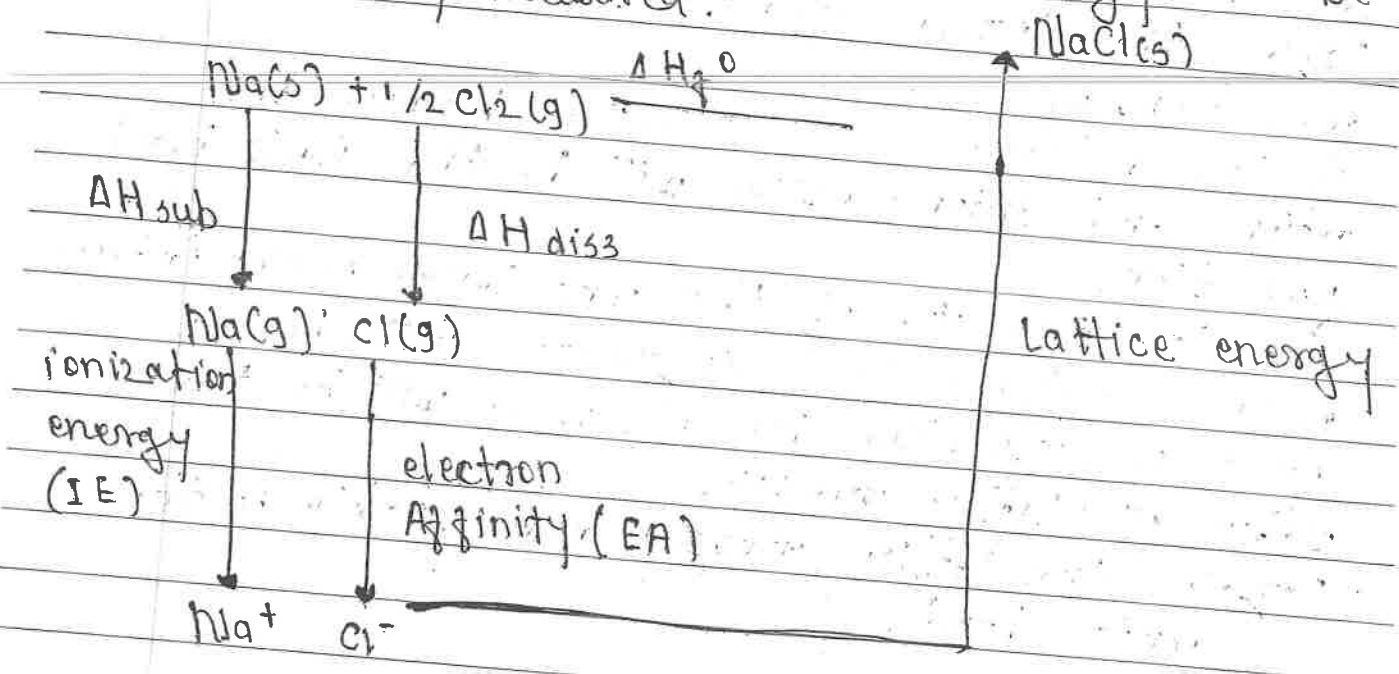 NaCl(s)
Na(s) + 1/2 Cl2(g) ΔHf°
ΔH sub
ΔH diss
Na(g) Cl(g)
Lattice energy
ionization
energy
(IE)
electron
Affinity (EA)
Na⁺ Cl⁻